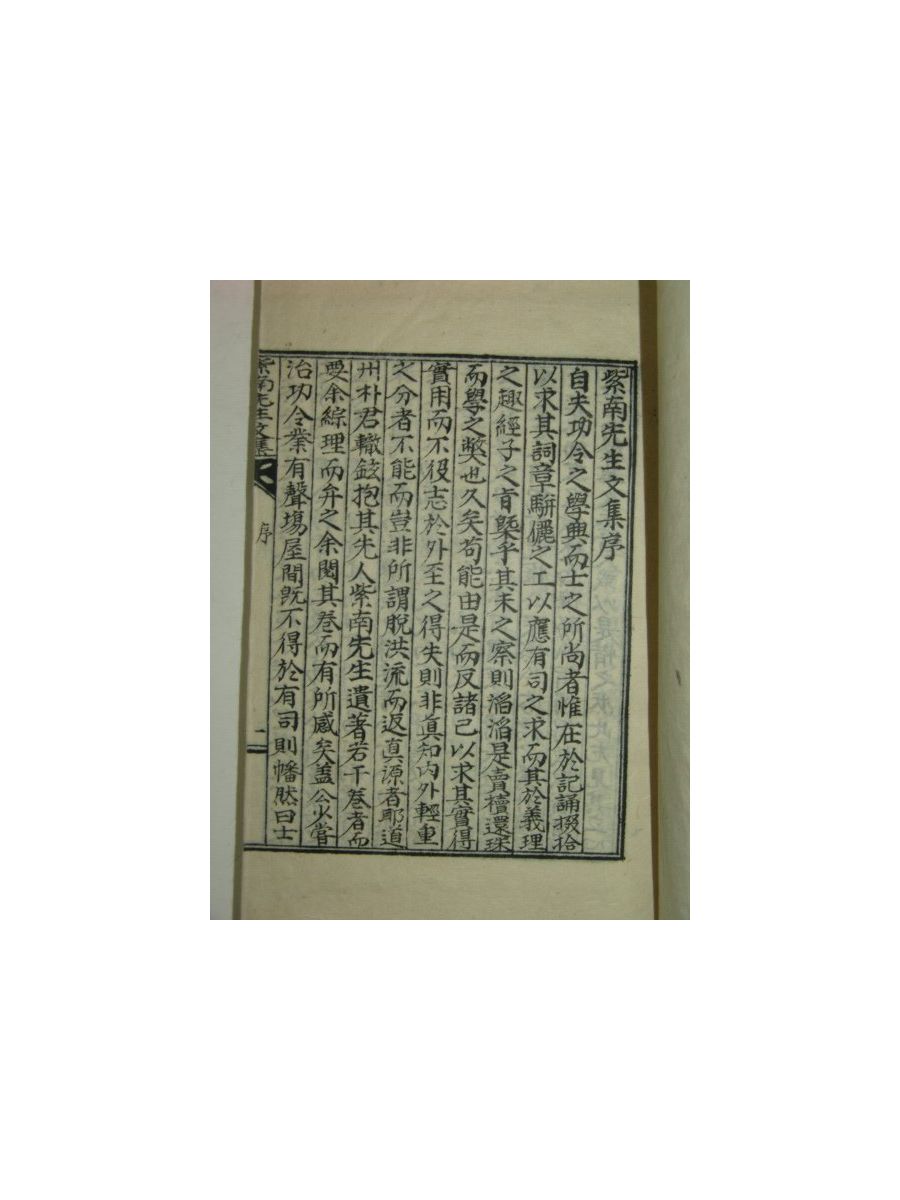 紫南先生文集序
自夫功令之學興而士之所尚者惟在於記誦掇拾
以求其詞章騈儷之工以應有司之求而其於義理
之趣經子之旨槩乎其未之察則滔滔是賣櫝還珠
而學之弊也久矣苟能由是而反諸己以求其實得
實用而不役志於外至之得失則非眞知內外輕重
之分者不能而豈非所謂脫洪流而返眞源者耶道
州朴君轍鉉抱其先人紫南先生遺著若干卷者而
要余綜理而弁之余閱其卷而有所感矣盖公少嘗
治功令業有聲塲屋間旣不得於有司則幡然曰士
紫南先生文集
序
一